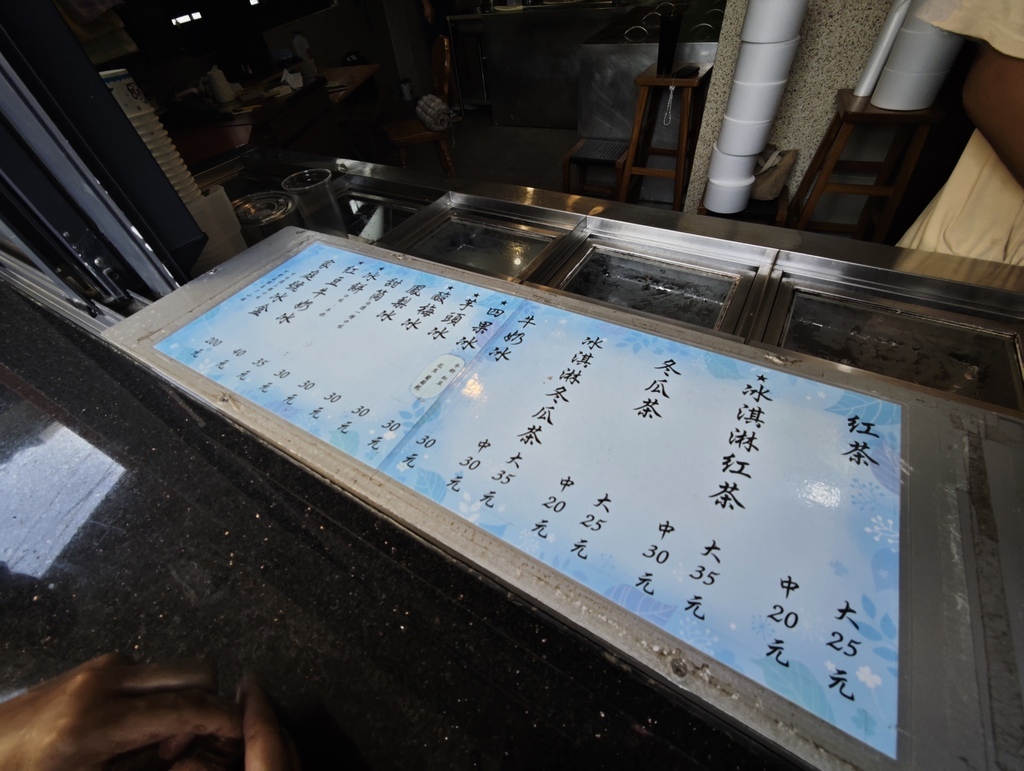 紅茶
大25元
中20元
★冰淇淋紅茶
大35元
中30元
冬瓜茶
大25元
中20元
冰淇淋冬瓜茶
大35元
中30元
牛奶冰
30元
★四果冰
30元
★芋頭冰
30元
★酸梅冰
30元
鳳梨冰
30元
冰甜筒
30元
★冰餅
35元
★紅豆牛奶冰
40元
家庭號冰盒
200元